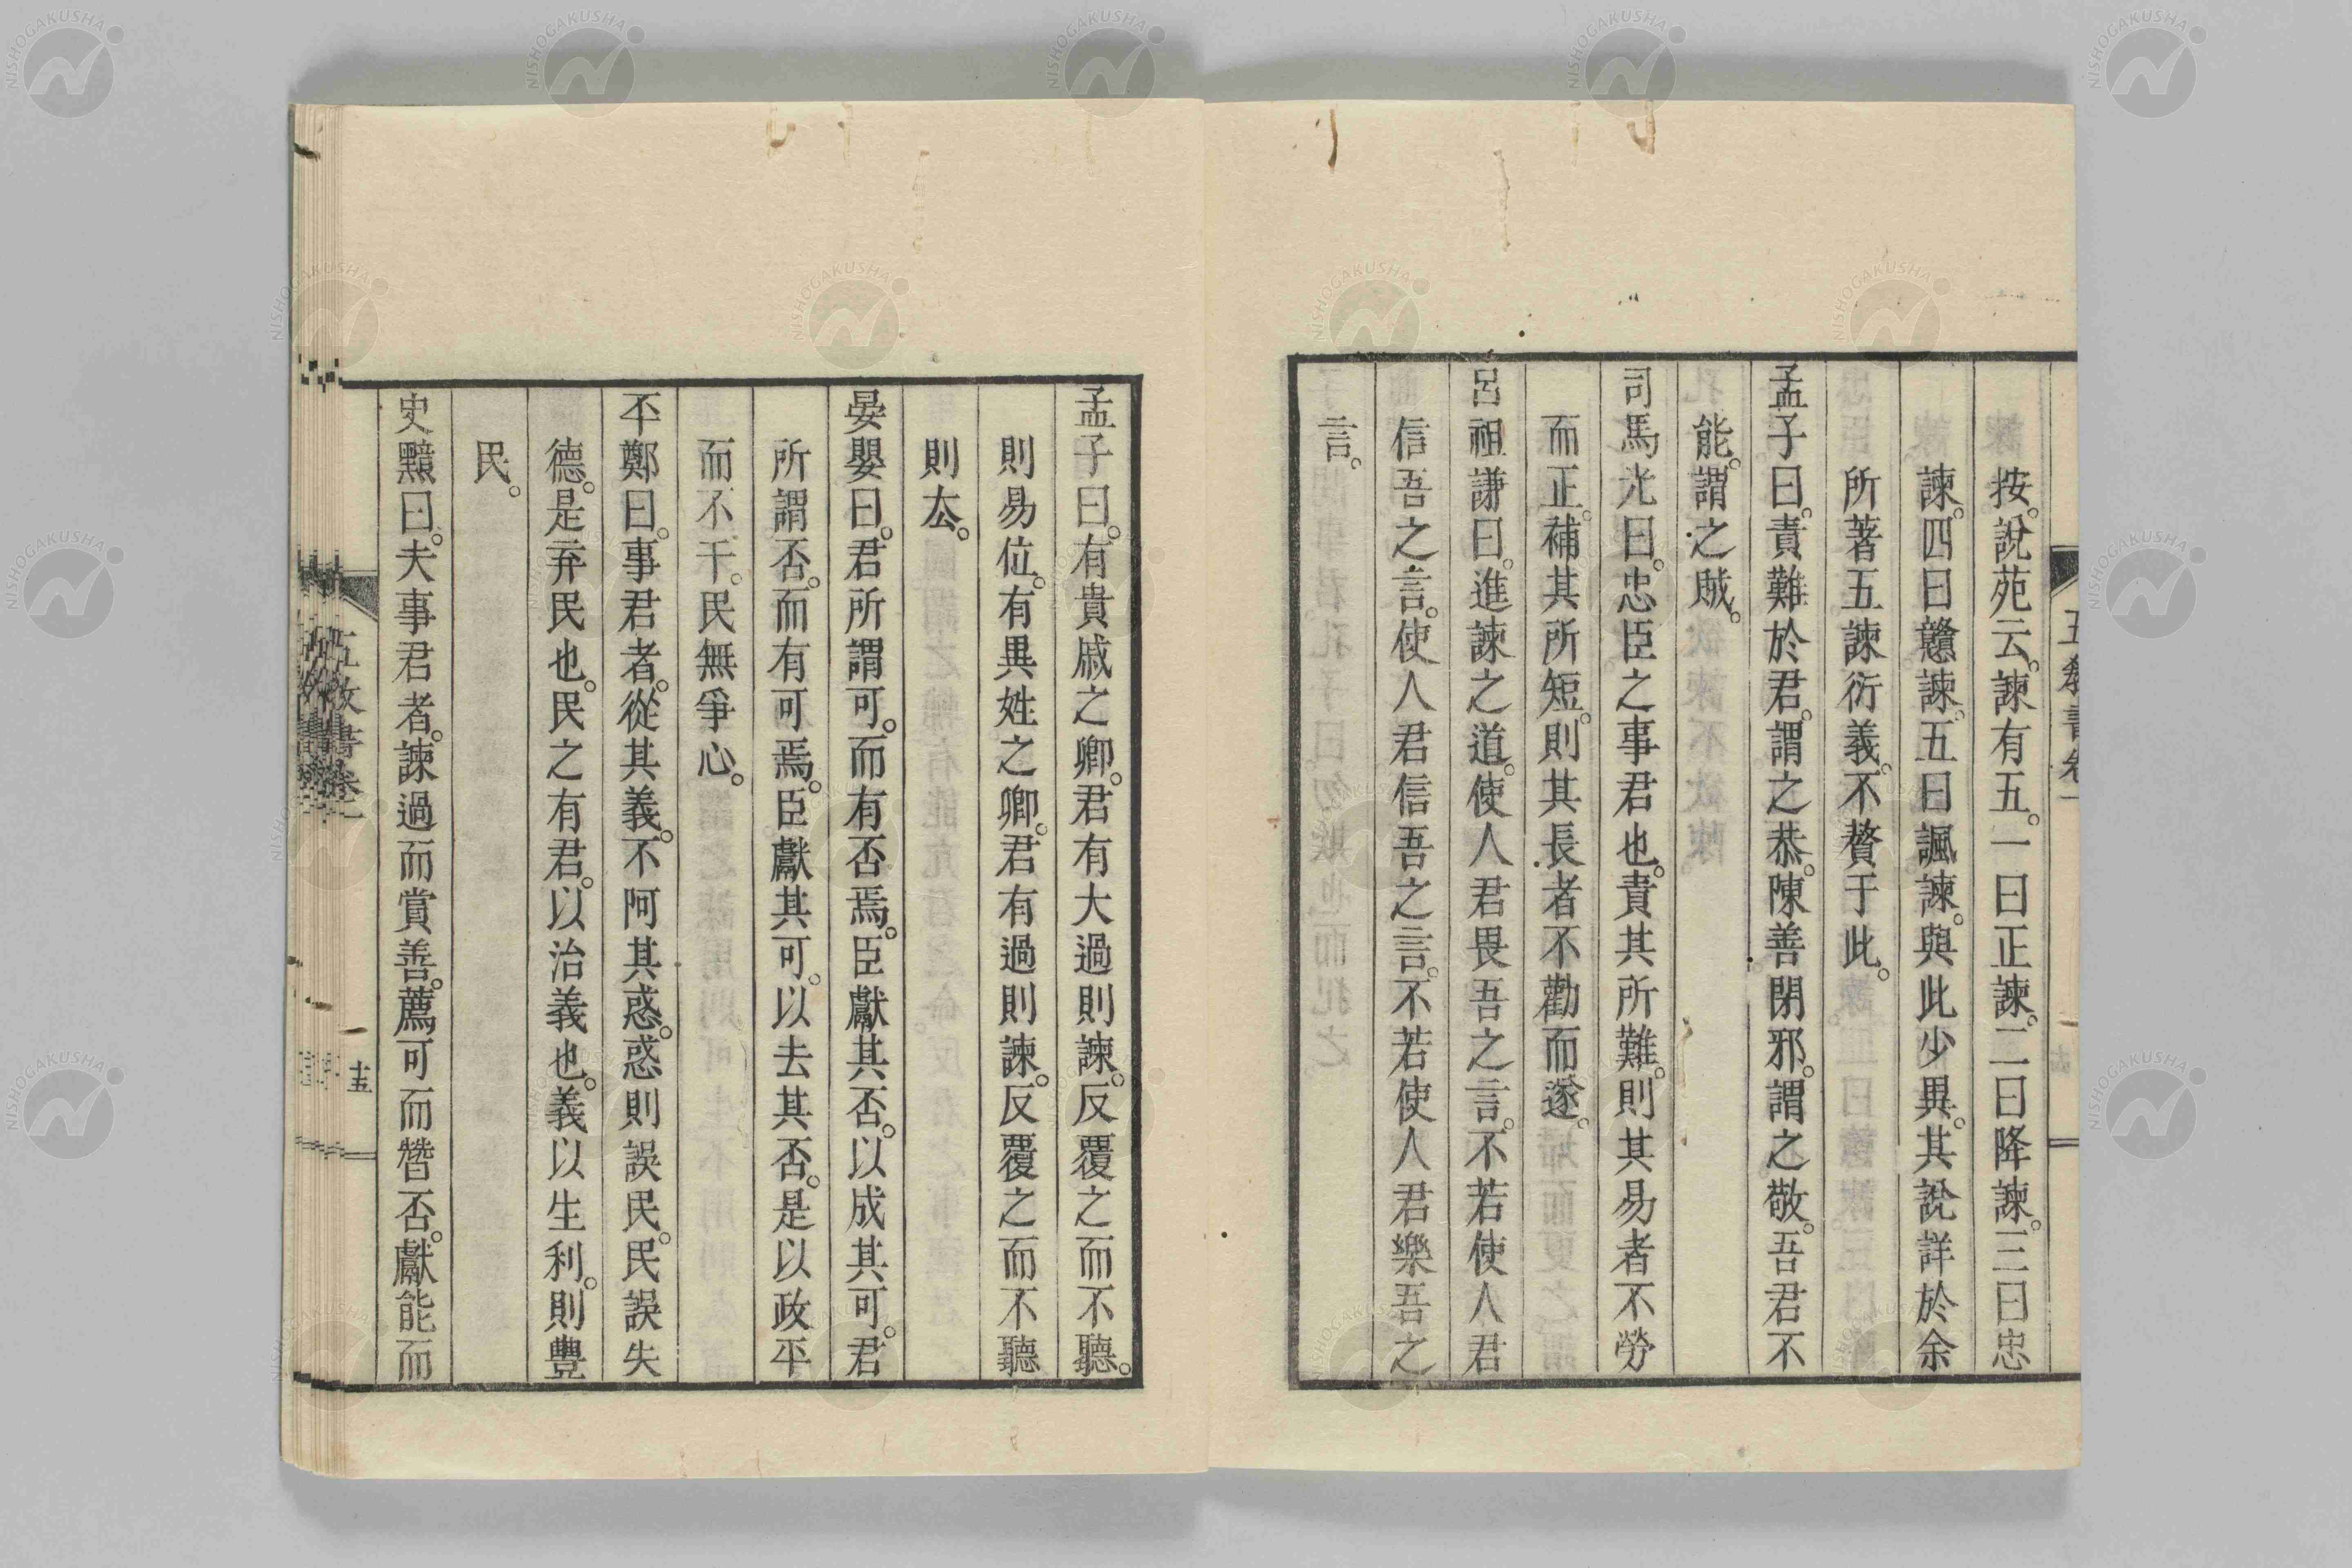 按。說苑云。諫有五。一曰正諫。二曰降諫。三曰忠
諫。四曰戇諫。五曰諷諫。與此少異。其說詳於余
所著五諫衍義。不贅于此。
孟子曰。責難於君。謂之恭。陳善閉邪。謂之敬。吾君不
能。謂之賊。
司馬光曰。忠臣之事君也。責其所難。則其易者不勞
而正。補其所短。則其長者不勸而遂。
呂祖謙曰。進諫之道。使人君畏吾之言。不若使人君
信吾之言。使人君信吾之言。不若使人君樂吾之
言。
孟子曰。有貴戚之卿。君有大過則諫。反覆之而不聽。
則易位。有異姓之卿。君有過則諫。反覆之而不聽
則厺。
晏嬰曰。君所謂可。而有否焉。臣獻其否。以成其可。君
所謂否。而有可焉。臣獻其可。以去其否。是以政平
而不干。民無爭心。
丕鄭曰。事君者。從其義。不阿其惑。惑則誤民。民誤失
德。是弃民也。民之有君。以治義也。義以生利。則豐
民。
史黯曰。夫事君者。諫過而賞善。薦可而替否。獻能而
五教書卷一
十五
NISHOGAKUSHA